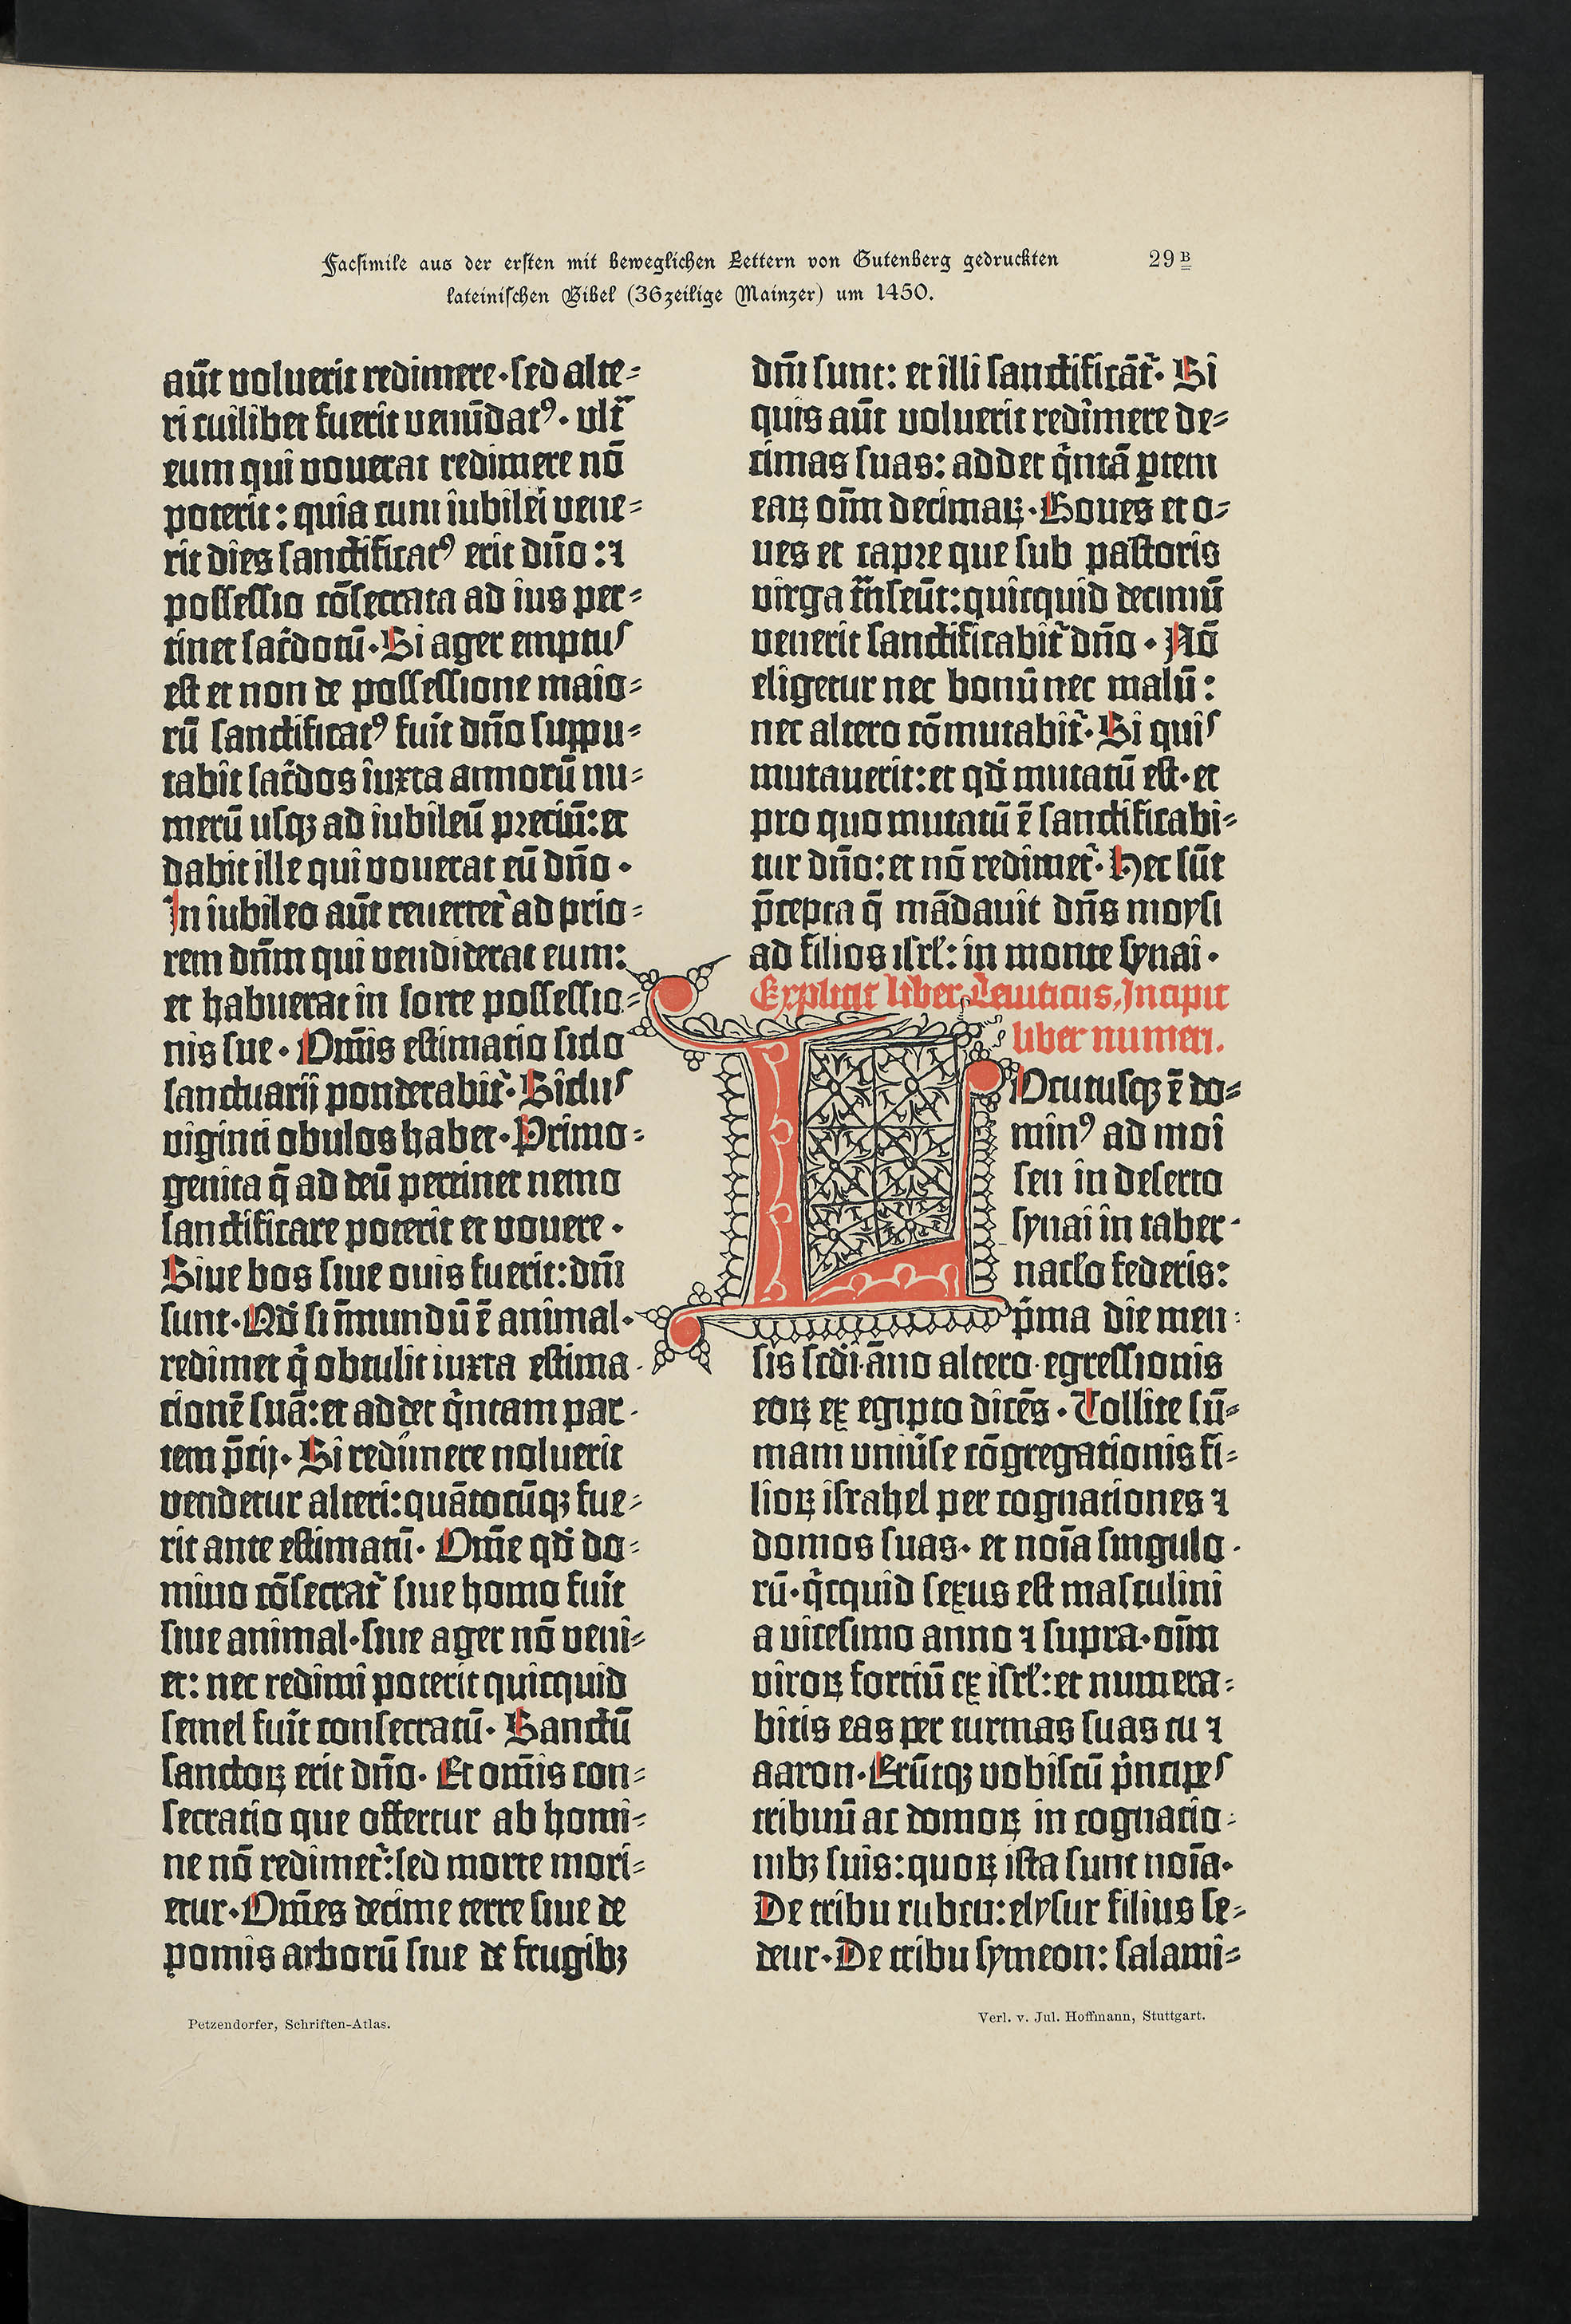 Facsimile aus der ersten mit beweglichen Lettern von Gutenberg gedruckten
lateinischen Bibel (36zeilige Mainzer) um 1450.
29 B
aūt voluerit redimere·sed alte⸗
ri cuilibet fuerit venūdatꝰ· ult̄
eum qui vouerat redimere nō
poterit: quia cum iubilei vene⸗
rit dies sanctificatꝰ erit dn̄o:⁊
possessio cōsecrata ad ius per⸗
tinet sac̄dotū·Si ager emptus
est et non de possessione maio⸗
rū sanctificatꝰ fuit dn̄o suppu⸗
tabit sac̄dos iuxta annorū nu⸗
merū usqꝫ ad iubileū preciū: et
dabit ille qui vouerat eū dn̄o·
In iubileo aūt reuertet̄ ad prio⸗
rem dn̄m qui vendiderat eum:
et habuerat in sorte possessio⸗
nis sue· Om̄is estimatio siclo
sanctuarij ponderabit̄·Siclus
viginti obulos habet·Primo⸗
genita q̄ ad deū pertinet nemo
sanctificare poterit et vouere·
Siue bos siue ouis fuerit: dn̄i
sunt·Qd̄ si īmundū ē animal·
redimet q̄ obtulit iuxta estima·
tionē suā: et addet q̄ntam par·
tem p̄cij· Si redimere noluerit
vendetur alteri: quātocūqꝫ fue⸗
rit ante estimatū· Om̄e qd̄ do⸗
mino cōsecrat̄ siue homo fuit
siue animal·siue ager nō veni⸗
et: nec redimi poterit quicquid
semel fuit consecratū· Sanctū
sanctoꝝ erit dn̄o· Et om̄is con⸗
secratio que offertur ab homi⸗
ne nō redimet̄: sed morte mori⸗
etur·Om̄es decime terre siue de
pomis arborū siue de frugibꝫ
dn̄i sunt: et illi sanctificāt̄· Si
quis aūt voluerit redimere de⸗
cimas suas: addet q̄ntā ꝑtem
eaꝝ oīm decimaꝝ·Boues et o⸗
ues et capre que sub pastoris
virga t̄nseūt: quicquid decimū
venerit sanctificabit̄ dn̄o· Nō
eligetur nec bonū nec malū:
nec altero cōmutabit̄·Si quis
mutauerit: et qd̄ mutatū est·et
pro quo mutatū ē sanctificabi⸗
tur dn̄o: et nō redimet̄· Hec sūt
p̄cepta q̄ mādauit dn̄s moysi
ad filios isrl̄: in monte synai·
Explicit liber Leuiticus, Incipit
liber numeri.
LOcutusqꝫ ē do⸗
minꝰ ad moi
sen in deserto
synai in taber·
nacl̄o federis:
p̄ma die men⸗
sis scd̄i·āno altero·egressionis
eoꝝ ex egipto dicēs· Tollite sū⸗
mam uniūse cōgregationis fi⸗
lioꝝ israhel per cognationes ⁊
domos suas· et noīa singulo·
rū·q̄cquid sexus est masculini
a vicesimo anno ⁊ supra·oīm
viroꝝ fortiū ex isrl̄: et numera⸗
bitis eas per turmas suas tu ⁊
aaron·Erūtqꝫ vobiscū p̄ncipes
tribuū ac domoꝝ in cognatio⸗
nibꝫ suis: quoꝝ ista sunt noīa·
De tribu ruben: elysur filius se⸗
deur·De tribu symeon: salami⸗
Petzendorfer, Schriften-Atlas.
Verl. v. Jul. Hoffmann, Stuttgart.